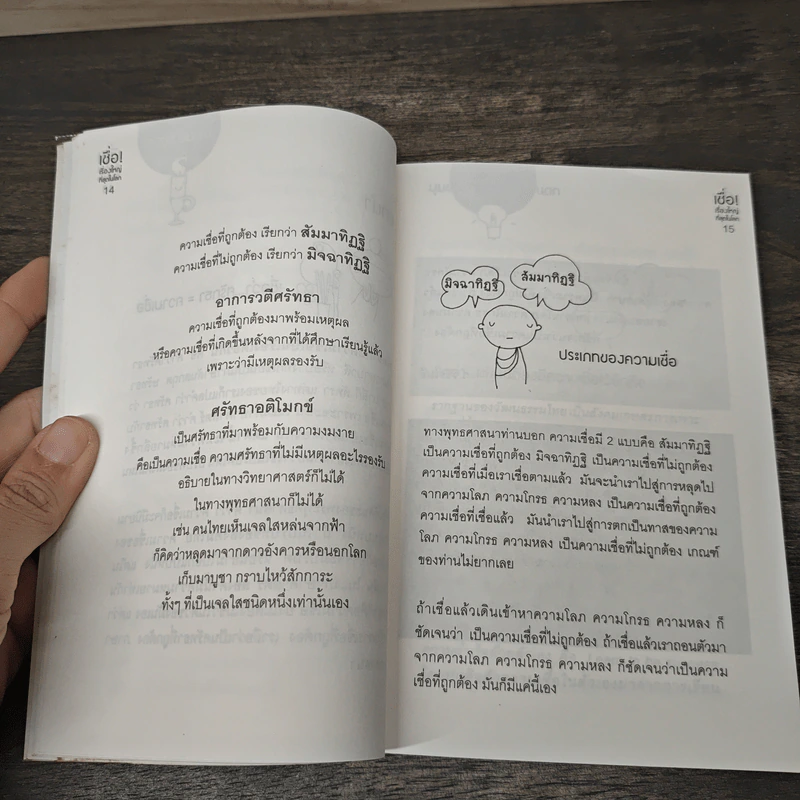 เชื่อ!
เรื่องใหญ่
ที่สุดในโลก
14
ความเชื่อที่ถูกต้อง เรียกว่า สัมมาทิฏฐิ
ความเชื่อที่ไม่ถูกต้อง เรียกว่า มิจฉาทิฏฐิ
อาการวตีศรัทธา
ความเชื่อที่ถูกต้องมาพร้อมเหตุผล
หรือความเชื่อที่เกิดขึ้นหลังจากที่ได้ศึกษาเรียนรู้แล้ว
เพราะว่ามีเหตุผลรองรับ
ศรัทธาอติโมกข์
เป็นศรัทธาที่มาพร้อมกับความงมงาย
คือเป็นความเชื่อ ความศรัทธาที่ไม่มีเหตุผลอะไรรองรับ
อธิบายในทางวิทยาศาสตร์ก็ไม่ได้
ในทางพุทธศาสนาก็ไม่ได้
เช่น คนไทยเห็นเจลใสหล่นจากฟ้า
ก็คิดว่าหลุดมาจากดาวอังคารหรือนอกโลก
เก็บมาบูชา กราบไหว้สักการะ
ทั้งๆ ที่เป็นเจลใสชนิดหนึ่งเท่านั้นเอง
เชื่อ!
เรื่องใหญ่
ที่สุดในโลก
15
มิจฉาทิฏฐิ
สัมมาทิฏฐิ
ประเภทของความเชื่อ
ทางพุทธศาสนาท่านบอก ความเชื่อมี 2 แบบคือ สัมมาทิฏฐิ
เป็นความเชื่อที่ถูกต้อง มิจฉาทิฏฐิ เป็นความเชื่อที่ไม่ถูกต้อง
ความเชื่อที่เมื่อเราเชื่อตามแล้ว มันจะนำเราไปสู่การหลุดไป
จากความโลภ ความโกรธ ความหลง เป็นความเชื่อที่ถูกต้อง
ความเชื่อที่เชื่อแล้ว มันนำเราไปสู่การตกเป็นทาสของความ
โลภ ความโกรธ ความหลง เป็นความเชื่อที่ไม่ถูกต้อง เกณฑ์
ของท่านไม่ยากเลย
ถ้าเชื่อแล้วเดินเข้าหาความโลภ ความโกรธ ความหลง ก็
ชัดเจนว่า เป็นความเชื่อที่ไม่ถูกต้อง ถ้าเชื่อแล้วเราถอนตัวมา
จากความโลภ ความโกรธ ความหลง ก็ชัดเจนว่าเป็นความ
เชื่อที่ถูกต้อง มันก็มีแค่นี้เอง